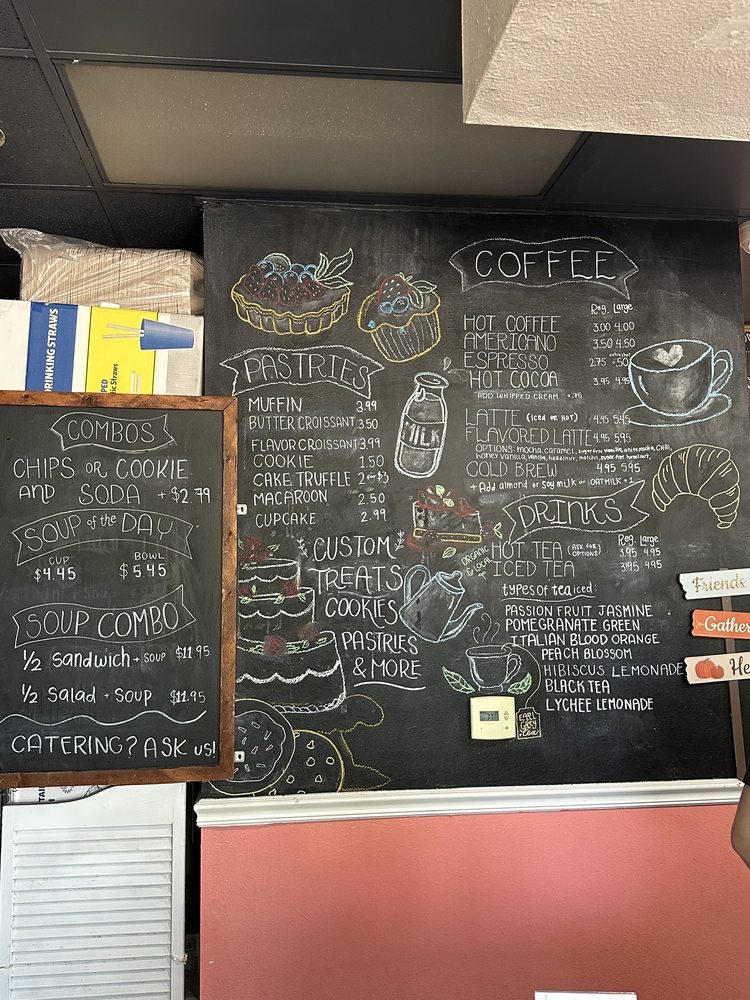 DRINKING STRAWS
COMBOS
CHIPS OR COOKIE
AND SODA +$2.79
SOUP of the DAY
CUP BOWL
$4.45 $5.45
SOUP COMBO
1/2 Sandwich + SOUP $11.95
1/2 Salad + SOUP $11.95
CATERING? ASK US!
PASTRIES
MUFFIN 3.99
BUTTER CROISSANT 3.50
FLAVOR CROISSANT 3.99
COOKIE 1.50
CAKE TRUFFLE
MACAROON 2.50
CUPCAKE 2.99
MILK
CUSTOM
TREATS
COOKIES
PASTRIES
& MORE
ORGANIC
& LOCAL
COFFEE
Reg. Large
HOT COFFEE 3.00 4.00
AMERICANO 3.50 4.50
ESPRESSO 2.75 +.50
HOT COCOA 3.95 4.95
ADD WHIPPED CREAM +.75
LATTE (ICED OR HOT) 4.95 5.95
FLAVORED LATTE 4.95 5.95
OPTIONS: mocha, caramel, sugar free vanilla, white mocha, CHAI,
honey vanilla, vanilla, hazelnut, matcha, sugar-free hazelnut,
COLD BREW 4.95 5.95
+ Add almond or soy milk or OATMILK +1
DRINKS
Reg. Large
HOT TEA (ASK FOR OPTIONS) 3.95 4.95
ICED TEA 3.95 4.95
types of tea iced:
PASSION FRUIT JASMINE
POMEGRANATE GREEN
ITALIAN BLOOD ORANGE
PEACH BLOSSOM
HIBISCUS LEMONADE
BLACK TEA
LYCHEE LEMONADE
EARL
GREY
tea
Friends
Gather